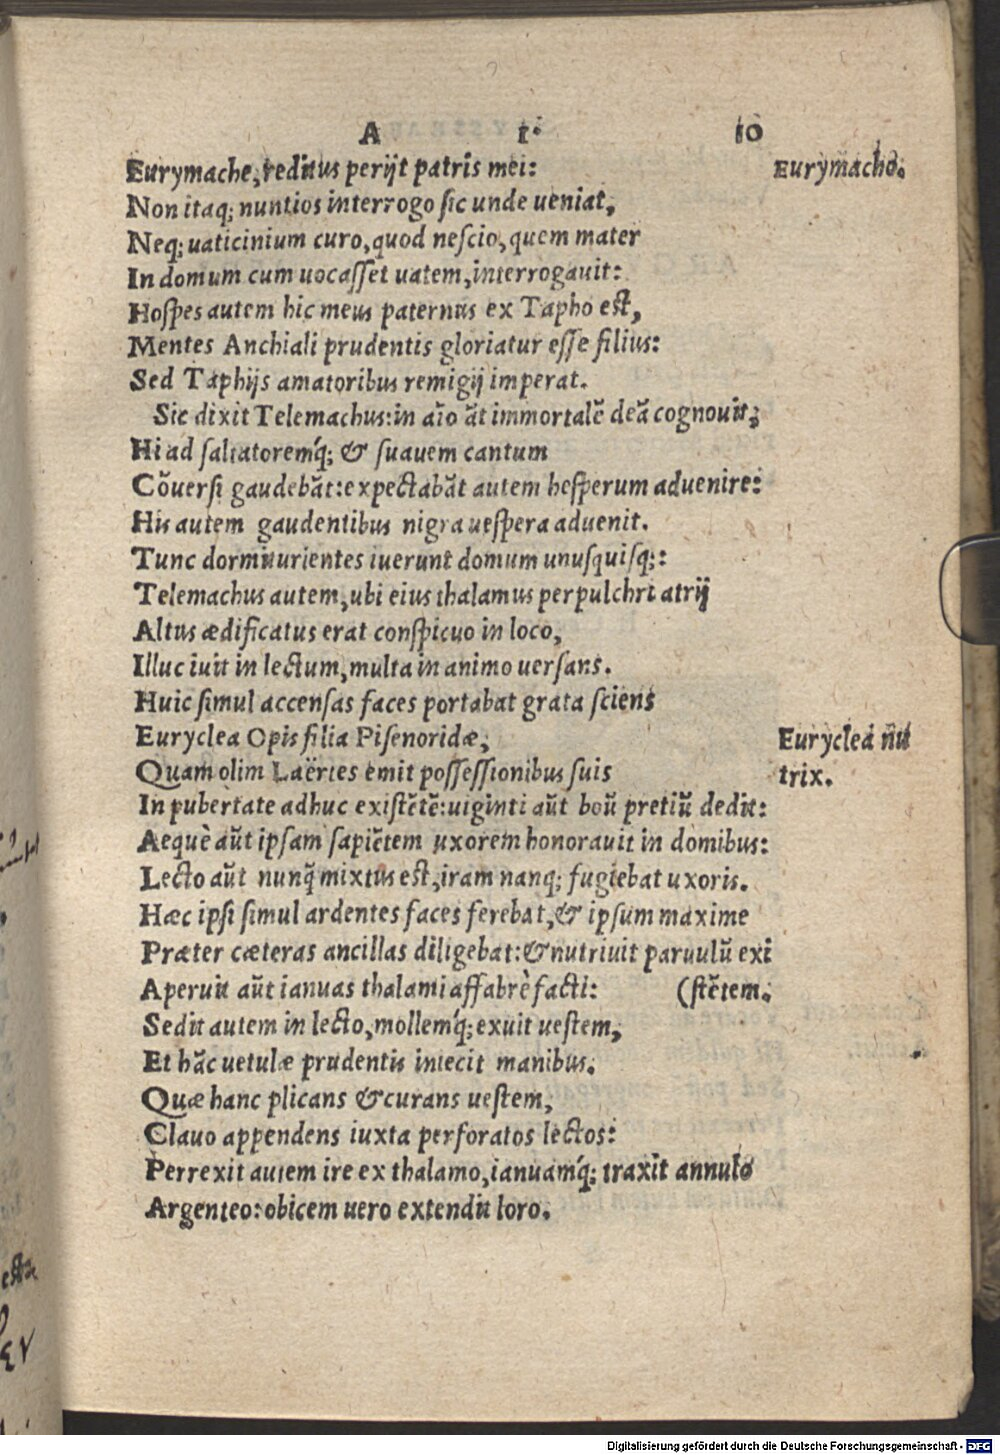 A 1. 10
Eurymache, reditus perijt patris mei: Eurymacho.
Non itaq; nuntios interrogo sic unde ueniat,
Neq; uaticinium curo, quod nescio, quem mater
In domum cum uocasset uatem, interrogauit:
Hospes autem hic meus paternus ex Tapho est,
Mentes Anchiali prudentis gloriatur esse filius:
Sed Taphijs amatoribus remigij imperat.
Sic dixit Telemachus: in aĩo ãt immortalẽ deã cognouit,
Hi ad saltatoremq́; & suauem cantum
Cõuersi gaudebãt: expectabãt autem hesperum aduenire:
His autem gaudentibus nigra uespera aduenit.
Tunc dormiturientes iuerunt domum unusquisq;:
Telemachus autem, ubi eius thalamus perpulchri atrij
Altus ædificatus erat conspicuo in loco,
Illuc iuit in lectum, multa in animo uersans.
Huic simul accensas faces portabat grata sciens
Euryclea Opis filia Pisenoridæ, Euryclea nu
Quam olim Laërtes emit possessionibus suis trix.
In pubertate adhuc existẽtẽ: uiginti aũt boũ pretiũ dedit:
Aequè aũt ipsam sapiẽtem uxorem honorauit in domibus:
Lecto aũt nunq̃ mixtus est, iram nanq; fugiebat uxoris.
Hæc ipsi simul ardentes faces ferebat, & ipsum maxime
Præter cæteras ancillas diligebat: & nutriuit paruulũ exi
Aperuit aũt ianuas thalami affabrè facti: (stẽtem.
Sedit autem in lecto, mollemq́; exuit uestem,
Et hãc uetulæ prudentis iniecit manibus.
Quæ hanc plicans & curans uestem,
Clauo appendens iuxta perforatos lectos:
Perrexit autem ire ex thalamo, ianuamq́; traxit annulo
Argenteo: obicem uero extendit loro.
Digitalisierung gefördert durch die Deutsche Forschungsgemeinschaft - DFG